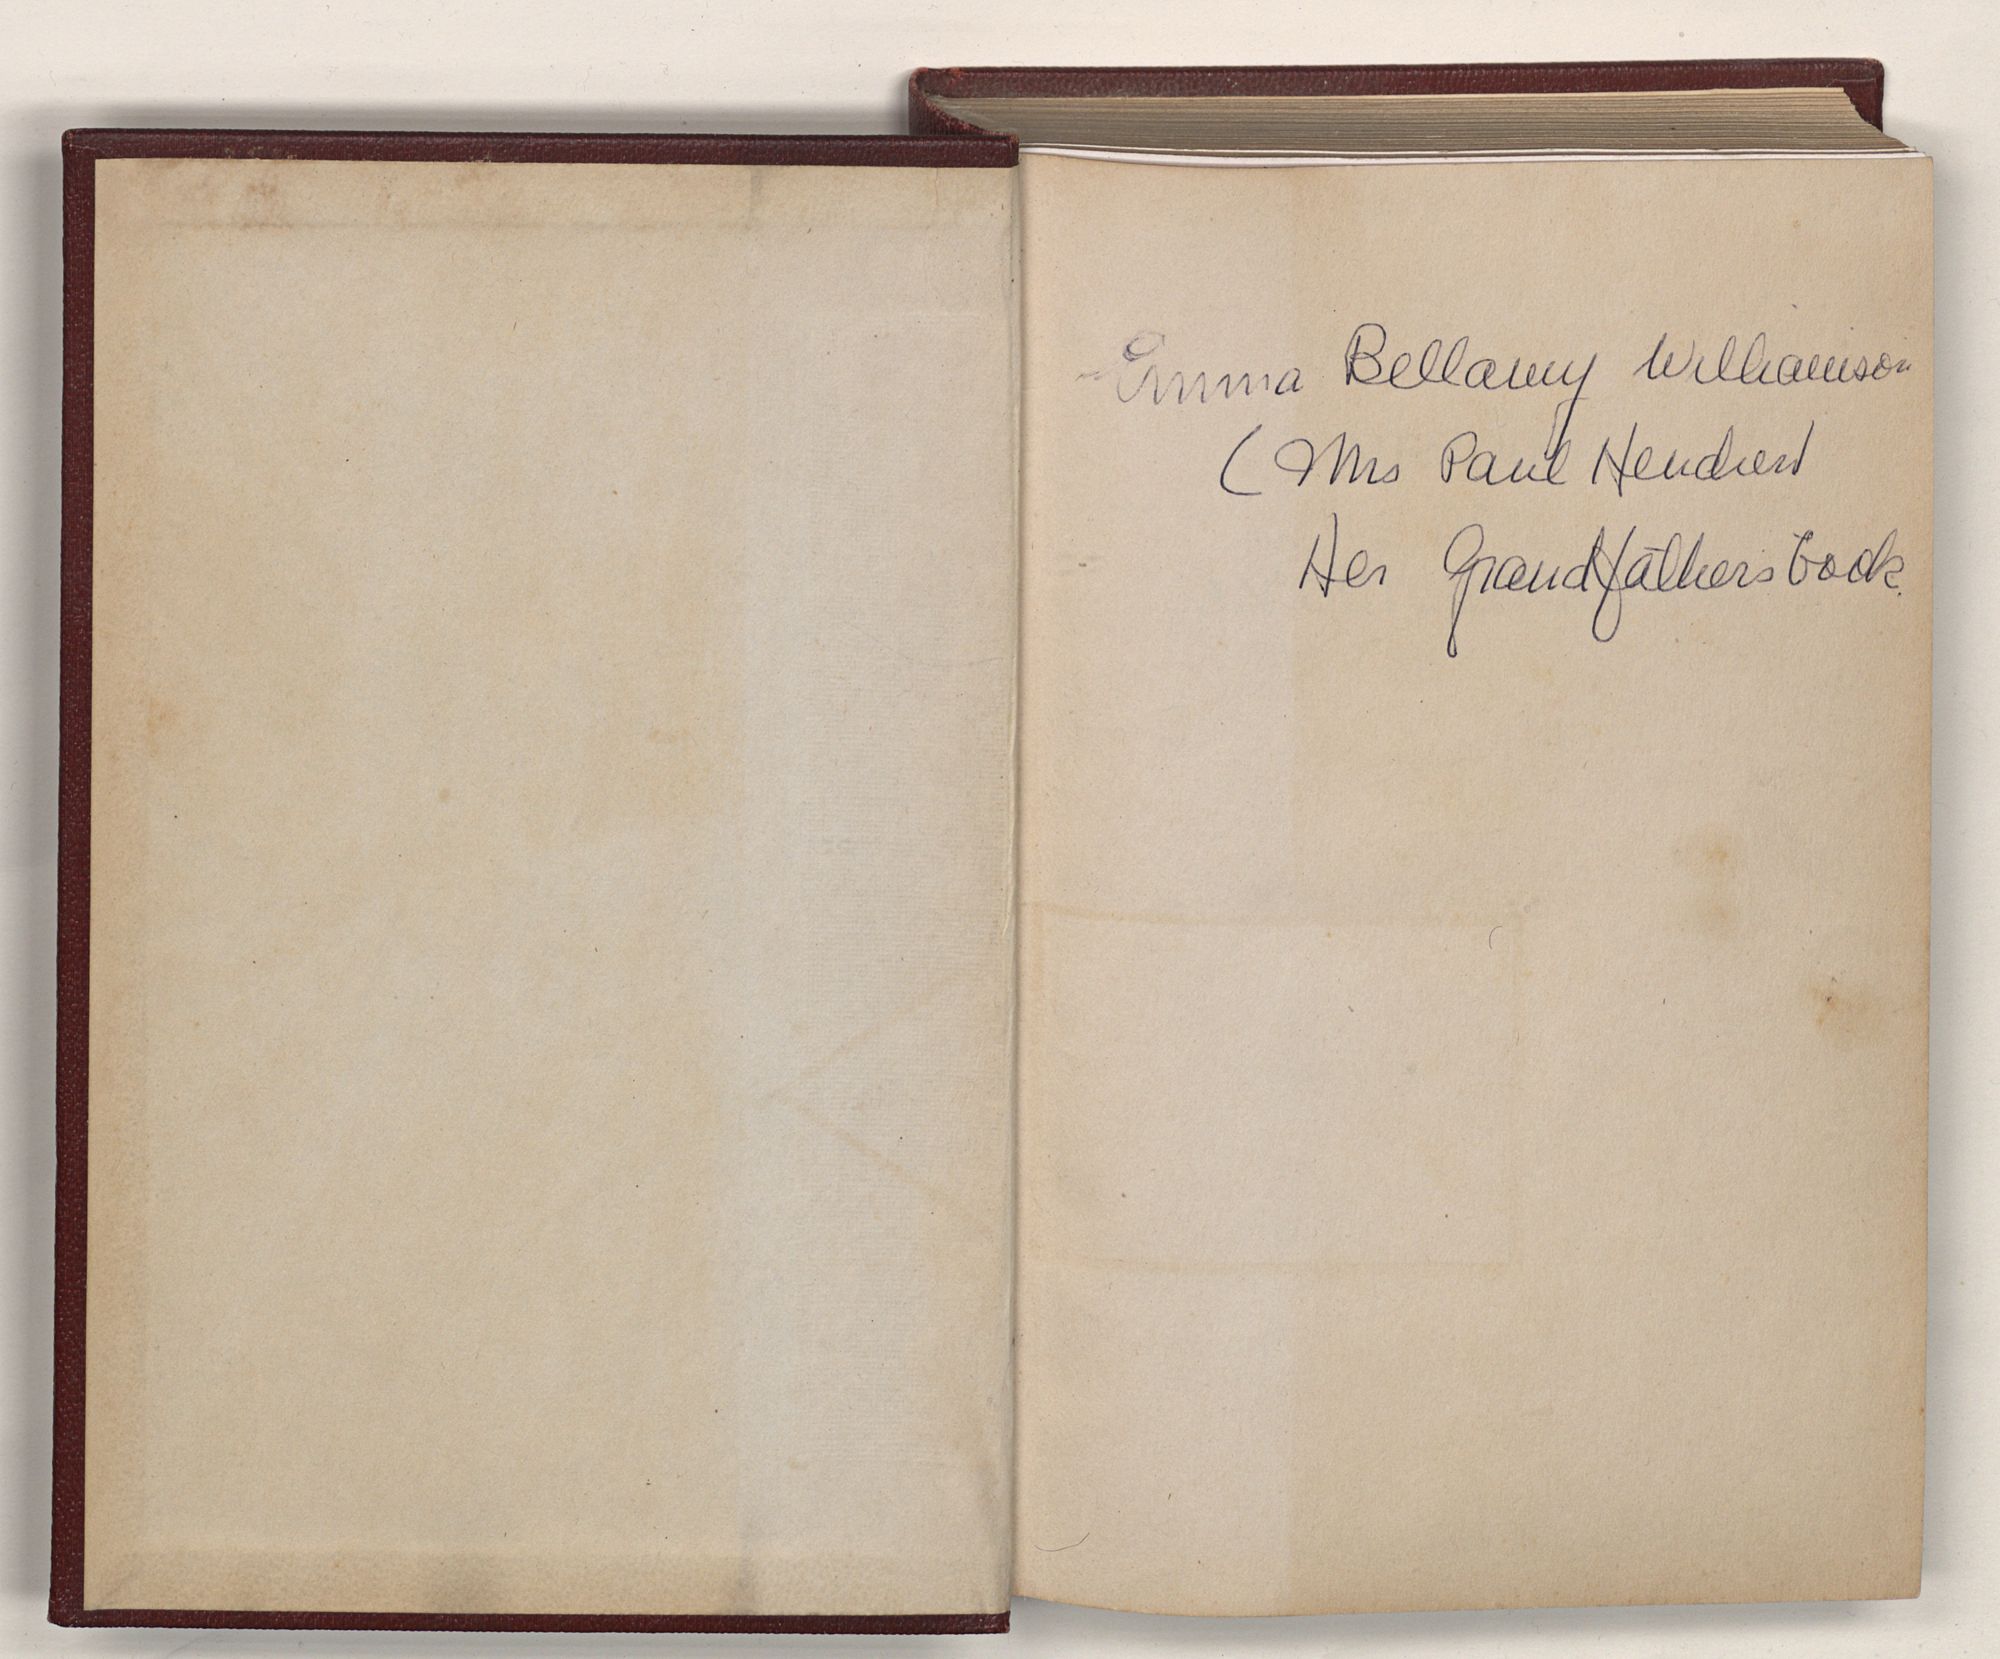 Emma Bellamy Williamson
( Mrs Paul Hendren)
Her Grandfathers book.